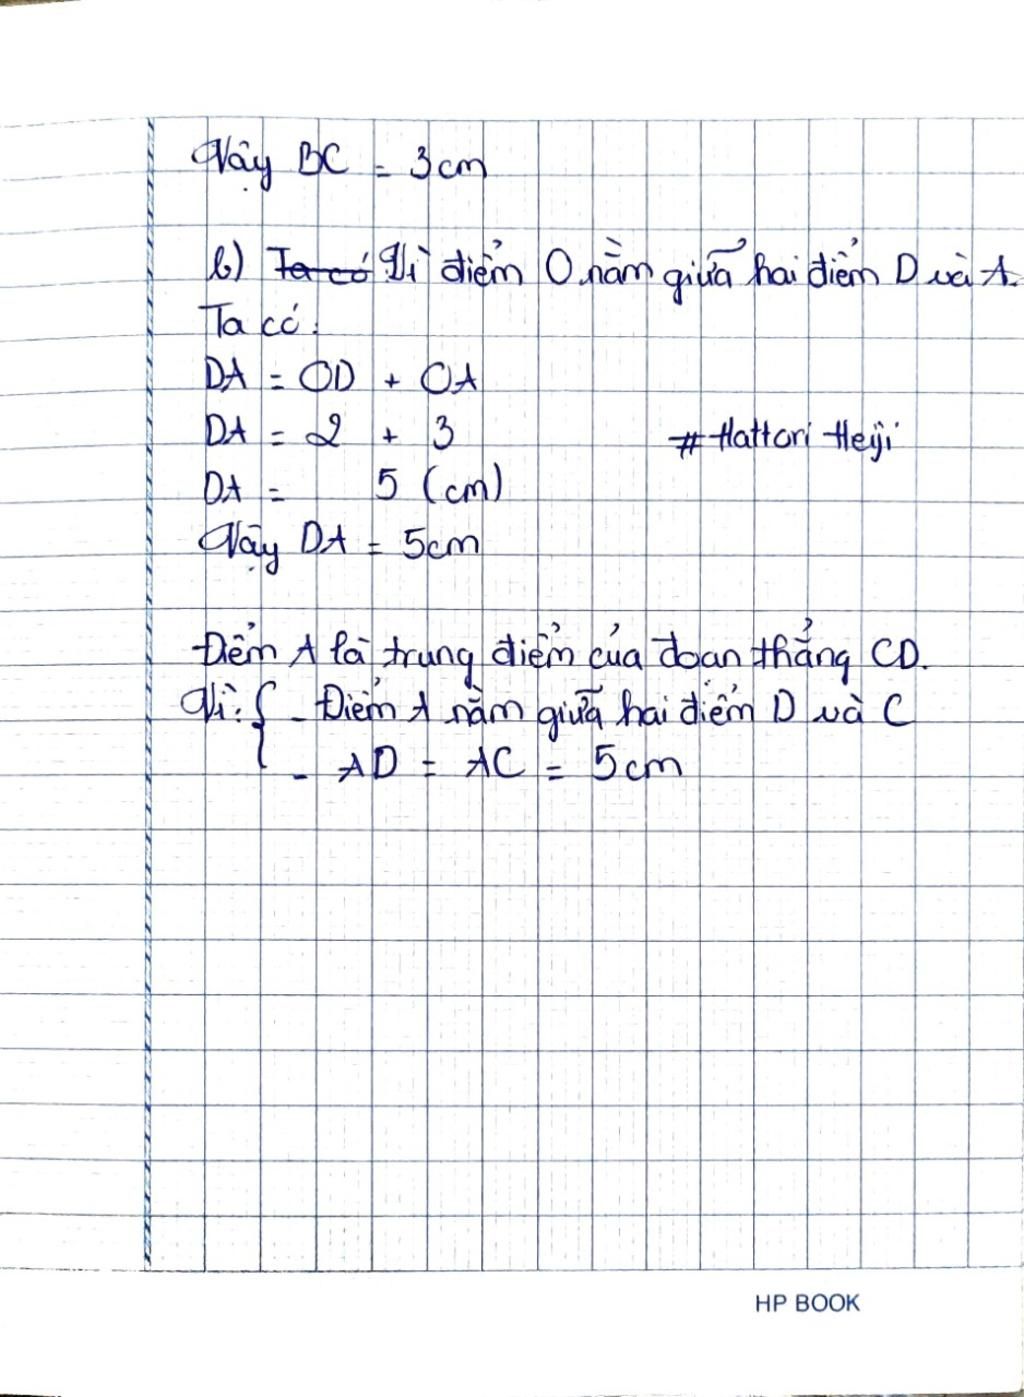 Vậy BC = 3cm
b) Ta có Vì điểm O nằm giữa hai điểm D và A.
Ta có:
DA = OD + OA
DA = 2 + 3
# Hattori Heiji
DA = 5 (cm)
Vậy DA = 5cm
Điểm A là trung điểm của đoạn thẳng CD.
Vì: { - Điểm A nằm giữa hai điểm D và C
- AD = AC = 5cm
HP BOOK